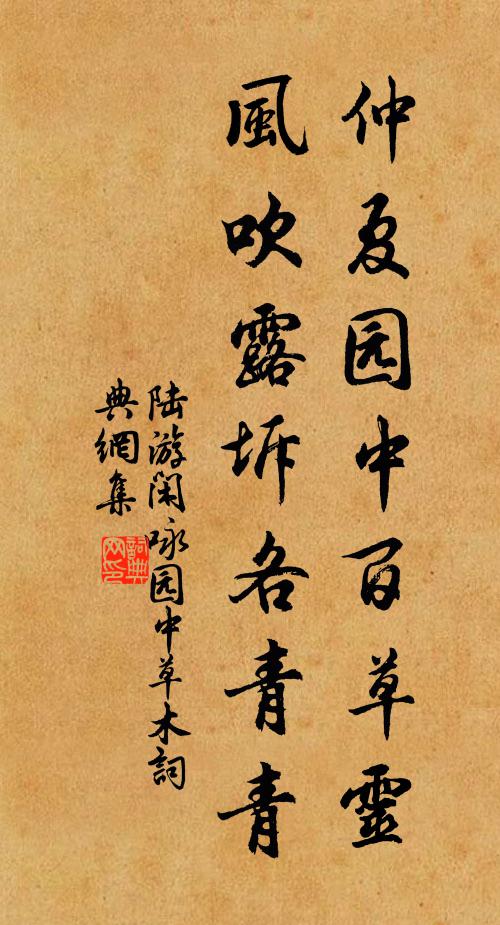 仲夏园中百草靈
風吹露坼各青青
陆游闲咏园中草木詞
典網集
詞典网印